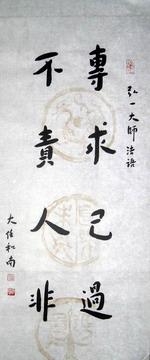 弘一大師法語
專求己過
不責人非
大住和南